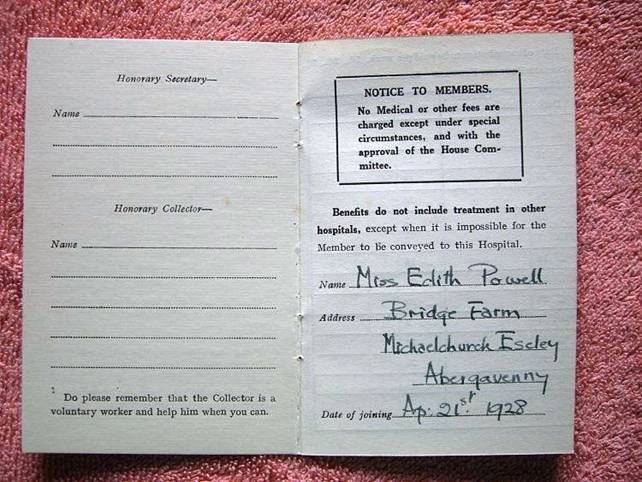 Honorary Secretary—
Name
Honorary Collector—
Name
Do please remember that the Collector is a
voluntary worker and help him when you can.
NOTICE TO MEMBERS.
No Medical or other fees are
charged except under special
circumstances, and with the
approval of the House Com-
mittee.
Benefits do not include treatment in other
hospitals, except when it is impossible for the
Member to be conveyed to this Hospital.
Name Miss Edith Powell
Address Bridge Farm
Michaelchurch Escley
Abergavenny
Date of joining Ap: 21st 1928